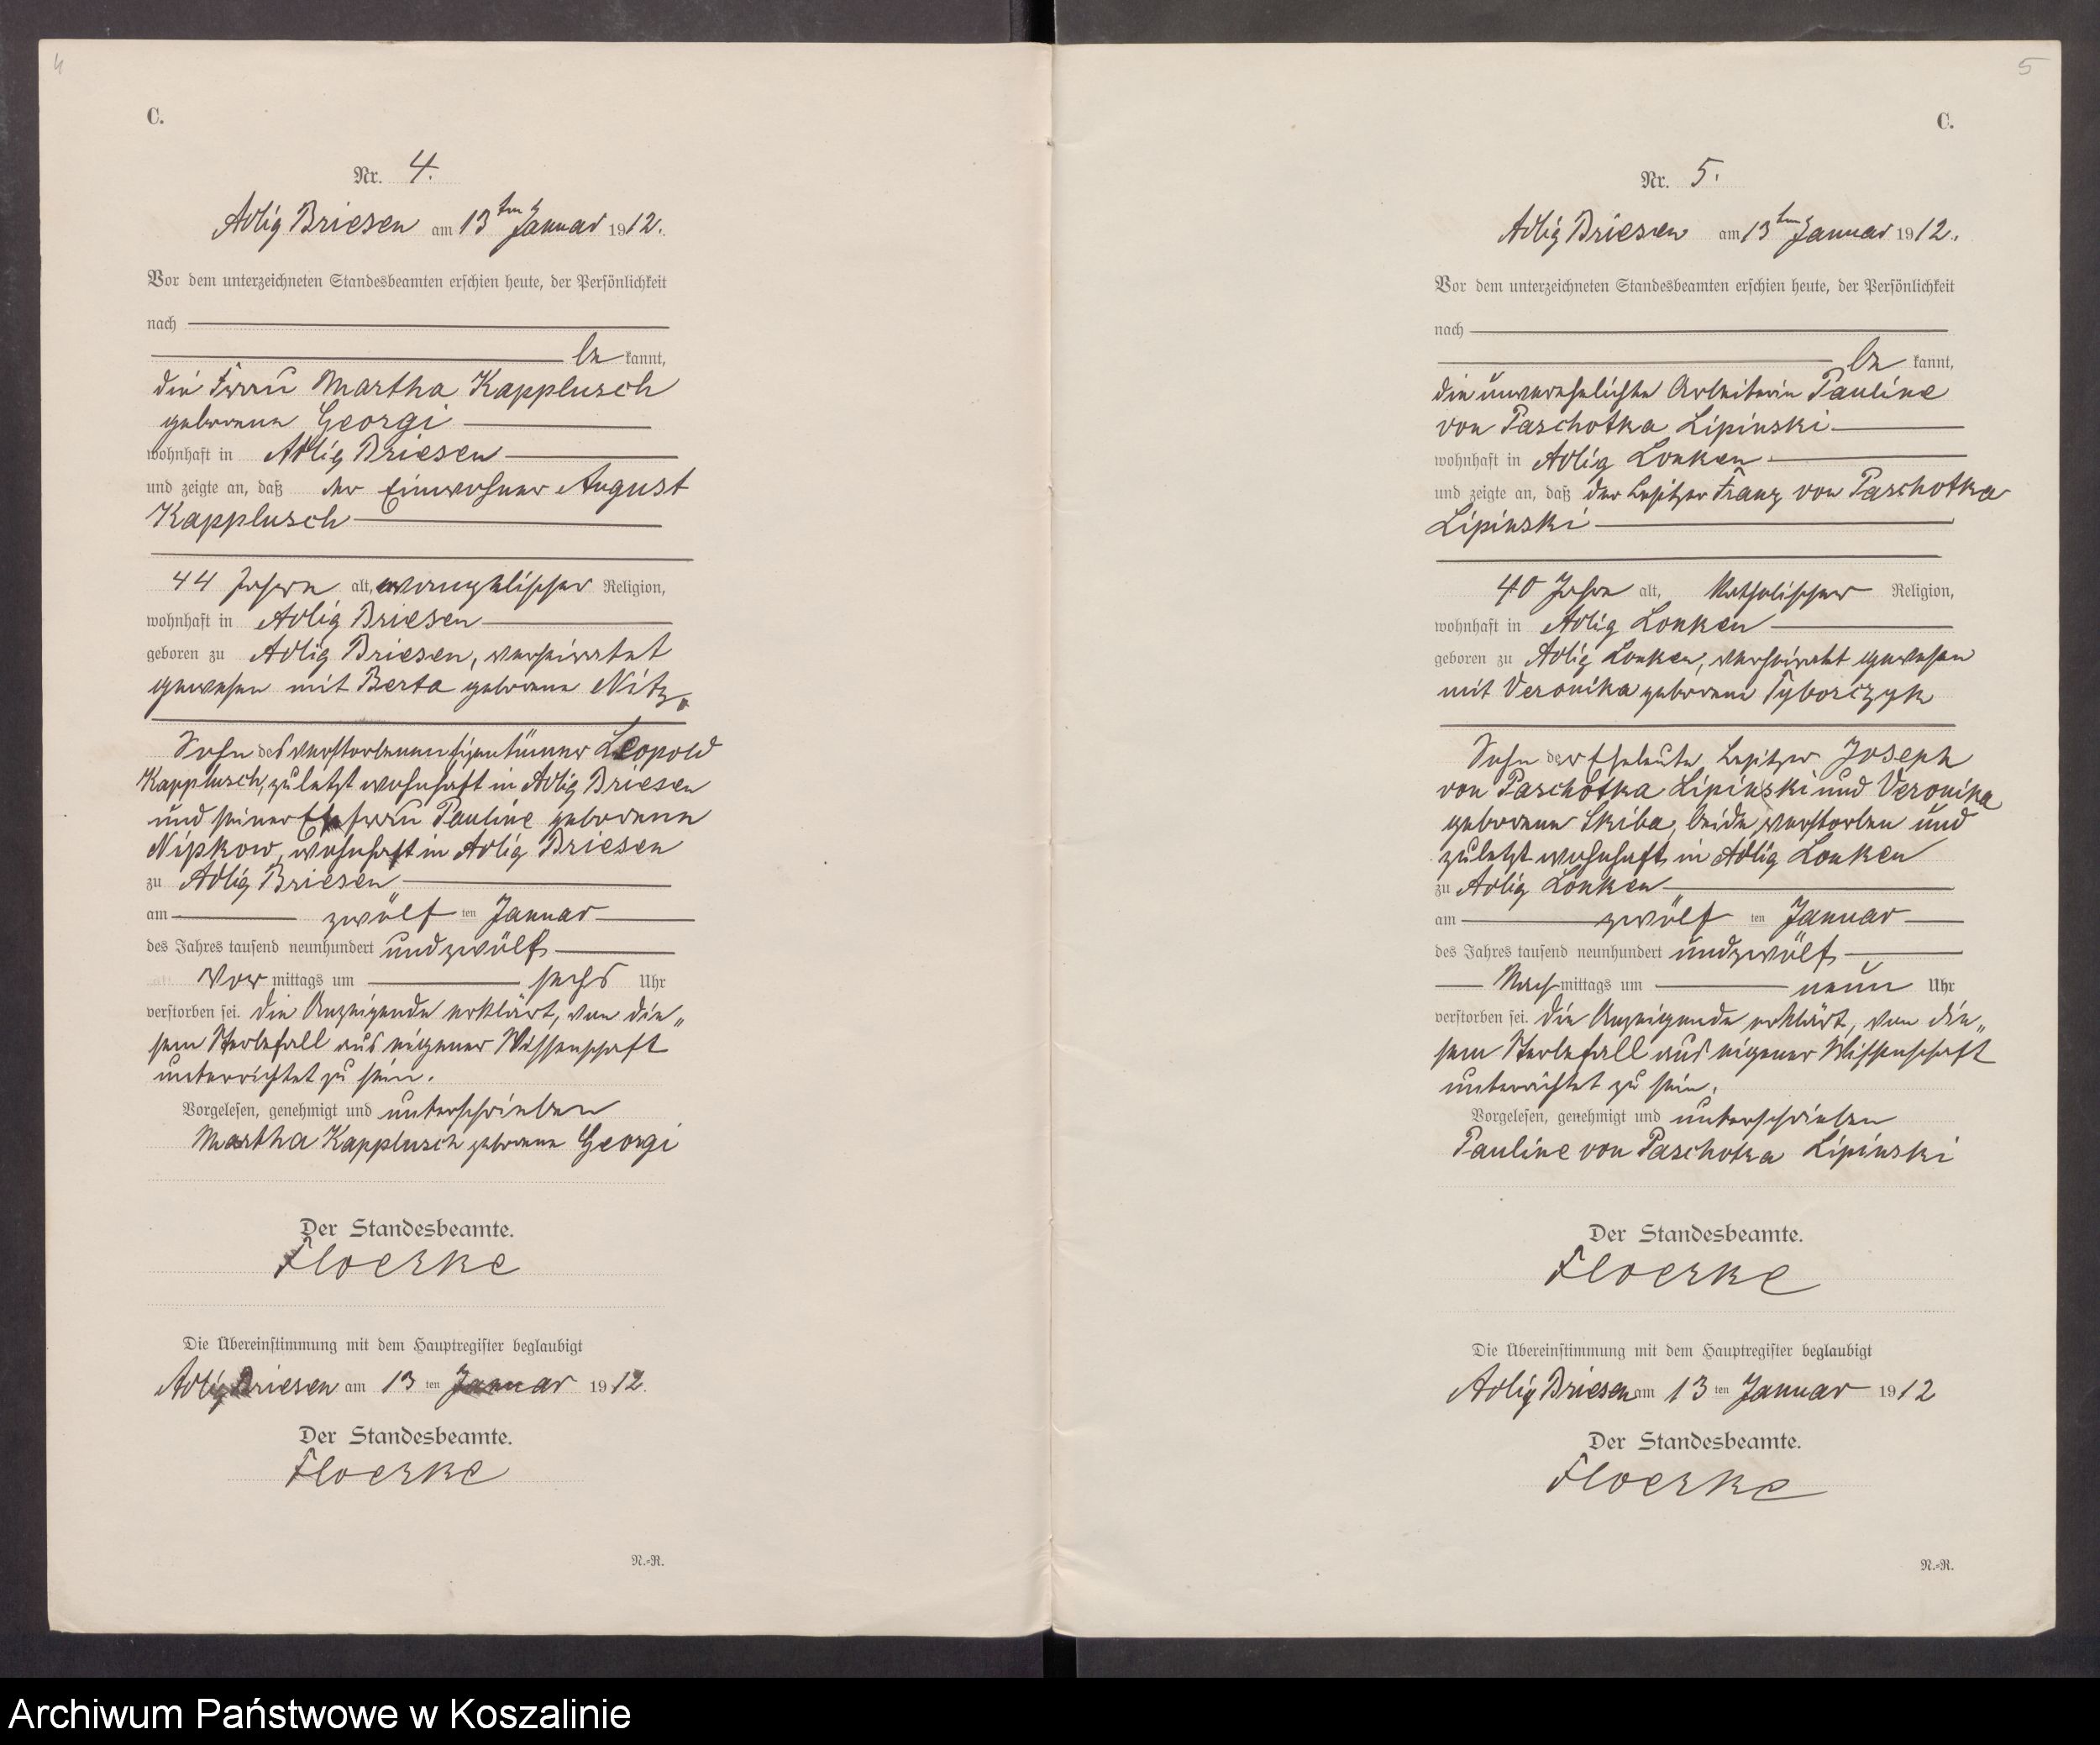 4
C.
Nr. 4.
Adlig Briesen am 13ten Januar 1912.
Vor dem unterzeichneten Standesbeamten erschien heute, der Persönlichkeit
nach
be kannt,
die Frau Martha Kapplusch
geborene Georgi
wohnhaft in Adlig Briesen
und zeigte an, daß der Einwohner August
Kapplusch
44 Jahre alt, evangelischer Religion,
wohnhaft in Adlig Briesen
geboren zu Adlig Briesen, verheiratet
gewesen mit Berta geborene Nitz,
Sohn des verstorbenen Eigentümer Leopold
Kapplusch, zuletzt wohnhaft in Adlig Briesen
und seiner Ehefrau Pauline geborene
Nipkow, wohnhaft in Adlig Briesen
zu Adlig Briesen
am zwölf ten Januar
des Jahres tausend neunhundert undzwölf
Vor mittags um sechs Uhr
verstorben sei. Die Anzeigende erklärt, von die„
sem Sterbefall aus eigener Wissenschaft
unterrichtet zu sein.
Vorgelesen, genehmigt und unterschrieben
Martha Kapplusch geborene Georgi
Der Standesbeamte.
Floerke
Die Übereinstimmung mit dem Hauptregister beglaubigt
Adlig Briesen am 13 ten Januar 1912.
Der Standesbeamte.
Floerke
N.-R.
5
C.
Nr. 5.
Adlig Briesen am 13ten Januar 1912.
Vor dem unterzeichneten Standesbeamten erschien heute, der Persönlichkeit
nach
be kannt,
die unverehelichte Arbeiterin Pauline
von Paschotka Lipinski
wohnhaft in Adlig Lonken
und zeigte an, daß der Besitzer Franz von Paschotka
Lipinski
40 Jahre alt, katholischer Religion,
wohnhaft in Adlig Lonken
geboren zu Adlig Lonken, verheiratet gewesen
mit Veronika geborene Tyborczyk
Sohn der Eheleute, Besitzer Joseph
von Paschotka Lipinski und Veronika
geborene Skiba, beide verstorben und
zuletzt wohnhaft in Adlig Lonken
zu Adlig Lonken
am zwölf ten Januar
des Jahres tausend neunhundert undzwölf
Nach mittags um neun Uhr
verstorben sei. Die Anzeigende erklärt, von die„
sem Sterbefall aus eigener Wissenschaft
unterrichtet zu sein.
Vorgelesen, genehmigt und unterschrieben
Pauline von Paschotka Lipinski
Der Standesbeamte.
Floerke
Die Übereinstimmung mit dem Hauptregister beglaubigt
Adlig Briesen am 13 ten Januar 1912
Der Standesbeamte.
Floerke
N.-R.
Archiwum Państwowe w Koszalinie